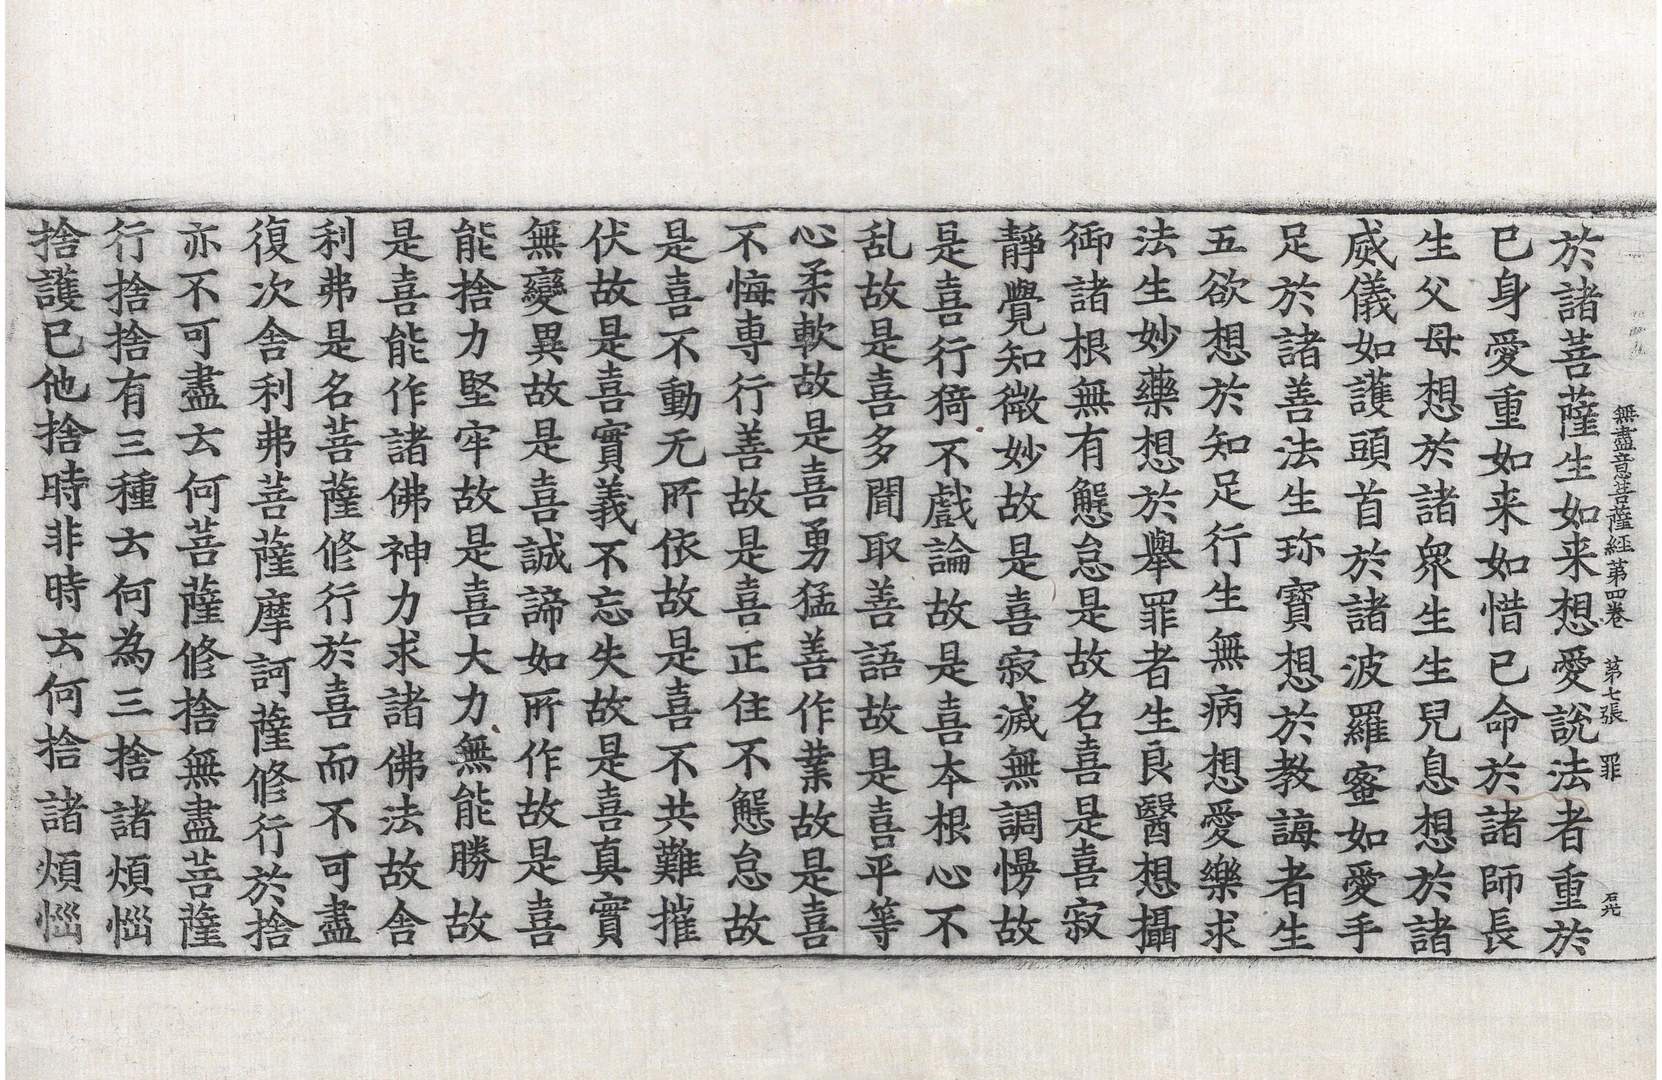 無盡意菩薩經第四卷　第七張　罪
於諸菩薩生如来想愛說法者重於
已身愛重如来如惜已命於諸師長
生父母想於諸衆生生兒息想於諸
威儀如護頭首於諸波羅蜜如愛手
足於諸善法生珎寶想於教誨者生
五欲想於知足行生無病想愛樂求
法生妙藥想於舉罪者生良醫想攝
御諸根無有懈怠是故名喜是喜寂
靜覺知微妙故是喜寂滅無調慢故
是喜行猗不戲論故是喜本根心不
乱故是喜多聞取善語故是喜平等
心柔軟故是喜勇猛善作業故是喜
不悔専行善故是喜正住不懈怠故
是喜不動无所依故是喜不共難摧
伏故是喜實義不忘失故是喜真實
無變異故是喜誠諦如所作故是喜
能捨力堅牢故是喜大力無能勝故
是喜能作諸佛神力求諸佛法故舍
利弗是名菩薩修行於喜而不可盡
復次舍利弗菩薩摩訶薩修行於捨
亦不可盡云何菩薩修捨無盡菩薩
行捨捨有三種云何為三捨諸煩惱
捨護已他捨時非時云何捨諸煩惱